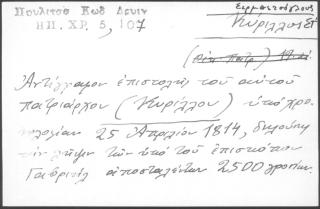 Πουλίτσα Κωδ Δρυιν
ΗΠ. ΧΡ. 5, 107
Κύριλλος ΣΤ
Ἀντίγραφον ἐπιστολῆς τοῦ αὐτοῦ
πατριάρχου (Κυρίλλου) ὑπὸ χρο
νολογίαν 25 Ἀπριλίου 1814, δηλοῦσα
τὴν λῆψιν τῶν ὑπὸ τοῦ ἐπισκόπου
Γαβριὴλ ἀποσταλέντων 2500 γροσίων.